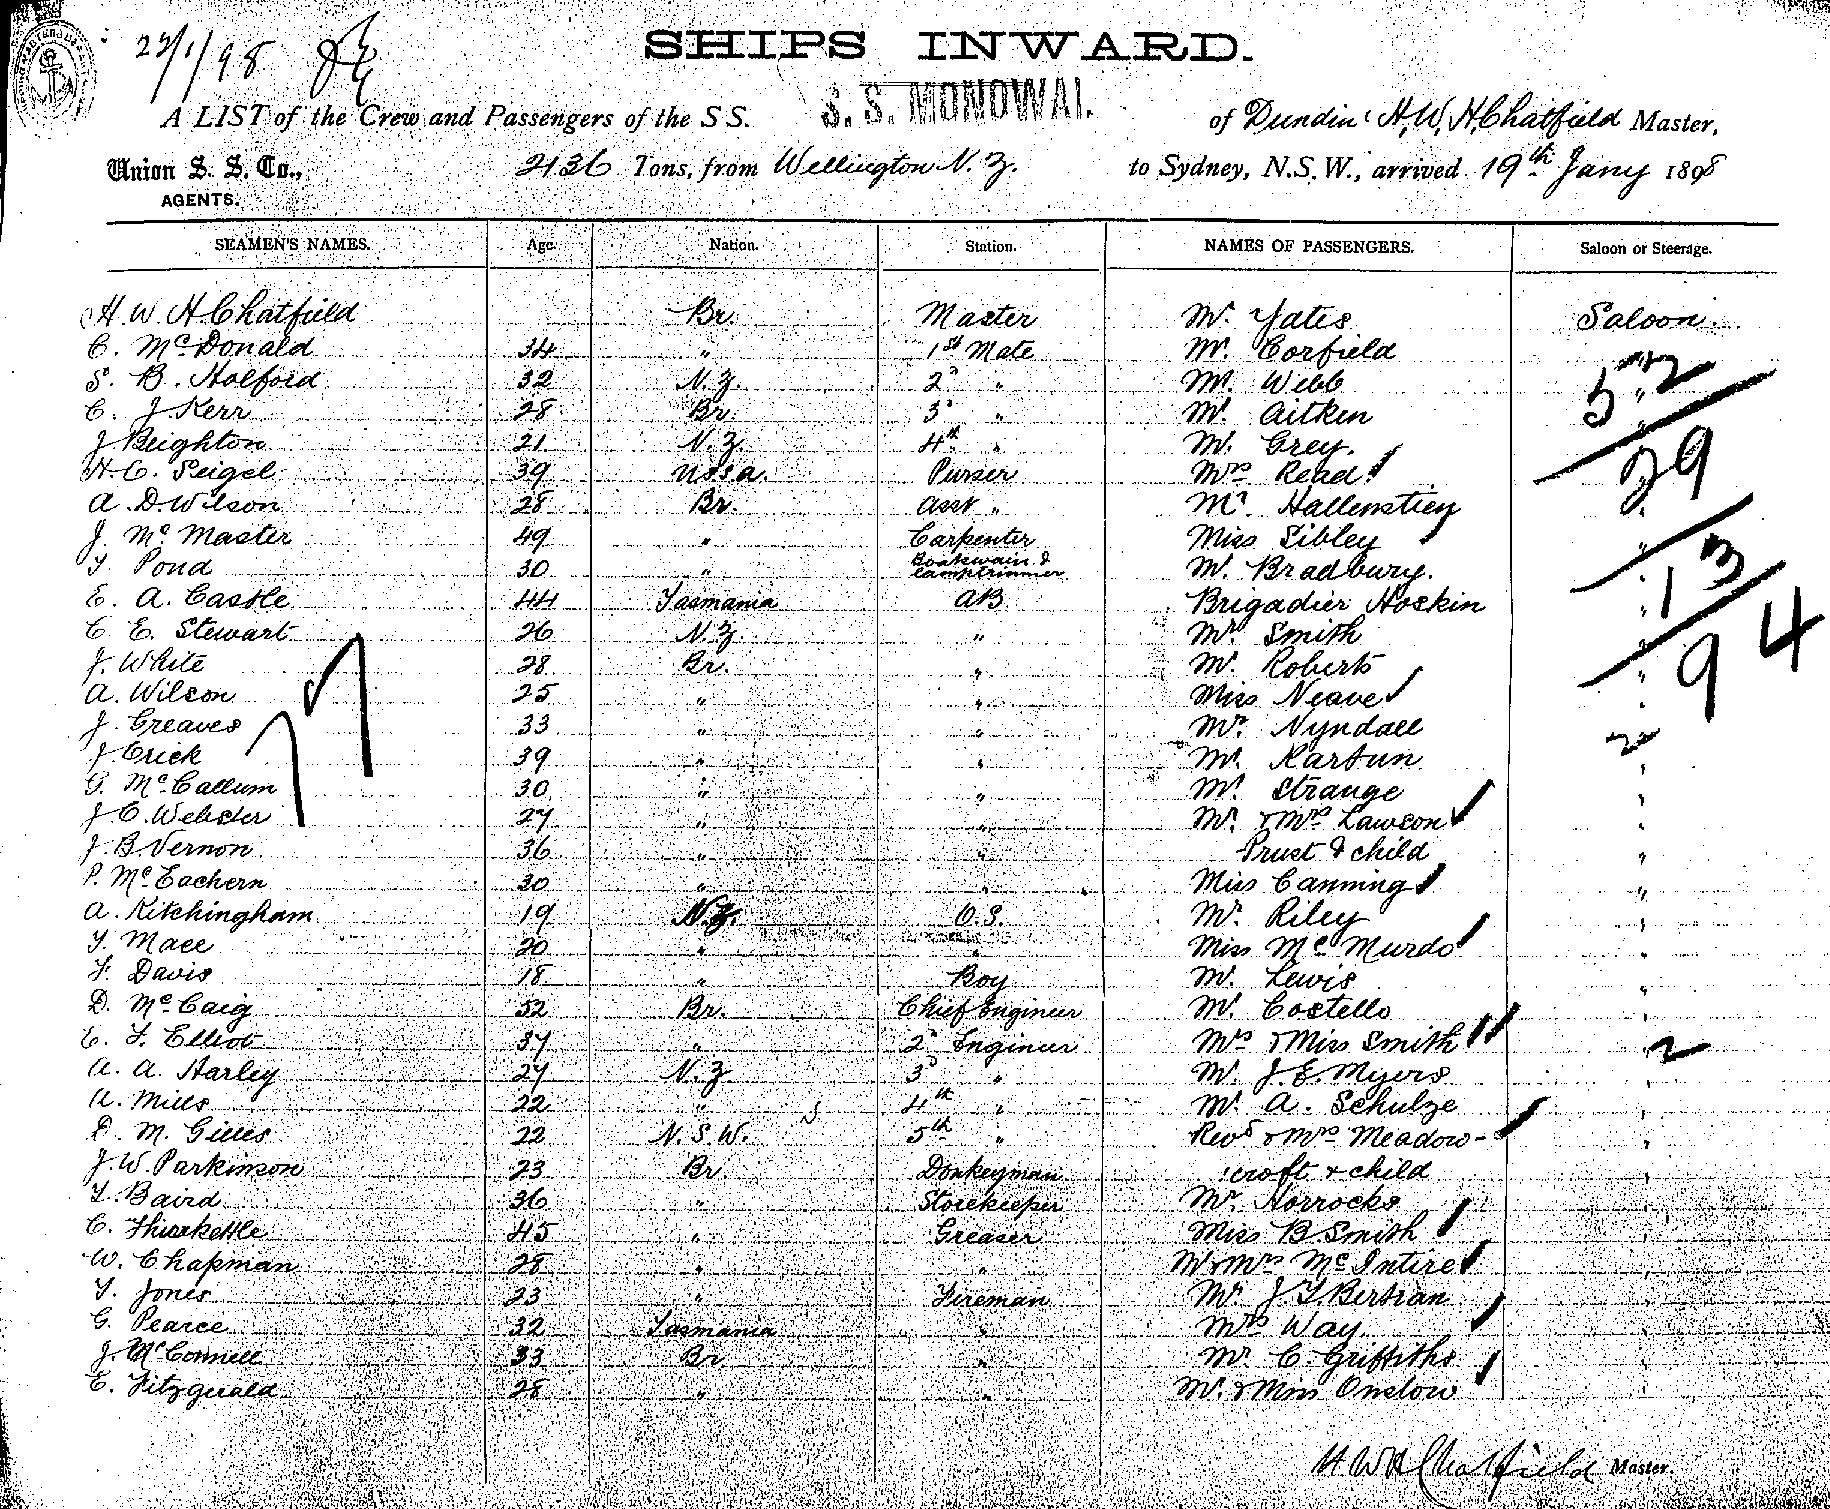 22/1/98
SHIPS INWARD.
A LIST of the Crew and Passengers of the SS. S. S. MONOWAI. of Dundin H. W. H. Chatfield Master,
Union S. S. Co., 2136 Tons, from Wellington N. Z. to Sydney, N.S.W., arrived 19th Jany 1898
AGENTS.
SEAMEN'S NAMES. Age Nation. Station. NAMES OF PASSENGERS. Saloon or Steerage.
H. W. H. Chatfield Br. Master Mr. Yates Saloon.
C. McDonald 34 " 1st Mate Mr. Corfield "
S. B. Holford 32 N.Z. 2d " Mr. Webb " 52
C. J. Kerr 28 Br. 3d " Mr. Aitken "
J. Beighton 21 N.Z. 4th " Mr. Grey. 29
H. C. Seigel 39 Purser Mrs Read
A. D. Wilson 28 Br. Asst " Mr. "
J. McMaster 49 " Carpenter Miss Sibley "
T. Pond 30 " Boatswain & Lamptrimmer Mr. Bradbury. " 13
E. A. Castle 44 Tasmania AB Brigadier Hoskin "
C. E. Stewart 26 N.Z. " Mr. Smith " 94
J. White 28 Br. " Mr. Roberts "
A. Wilson 25 " " Miss Neave "
J. Greaves 33 " " Mr. Nyndall 2
J. Crick 39 " " Mr. Karsun "
G. McCallum 30 " " Mr. Strange "
J. C. Webster 27 " " Mr. & Mrs Lawson "
J. B. Vernon 36 " " Prust & child "
P. McEachern 30 " " Miss Canning "
A. Kitchingham 19 N.Z. O.S. Mr. Riley "
T. Mace 20 " " Miss McMurdo "
F. Davis 18 " Boy Mr. Lewis "
D. McCaig 52 Br. Chief Engineer Mr. Costello "
C. F. Elliot 37 " 2d Engineer Mrs & Miss Smith " 2
A. A. Harley 27 N.Z. 3d " Mr. J. E. Myers "
A. Mills 22 " 4th " Mr. A. Schulze "
D. M. Gilles 22 N.S.W. 5th " Revd & Mrs Meadow- "
J. W. Parkinson 23 Br. Donkeyman croft & child "
T. Baird 36 " Storekeeper Mr. Horrocks "
C. Thirkettle 45 " Greaser Miss B. Smith "
W. Chapman 28 " " Mr & Mrs McIntire "
T. Jones 23 " Fireman Mr. J. T. Bertram "
G. Pearce 32 Tasmania " Mrs Way. "
J. McConnell 33 Br " Mr C. Griffiths "
E. Fitzgerald 28 " " Mr. & Miss Onslow "
H W H Chatfield Master.